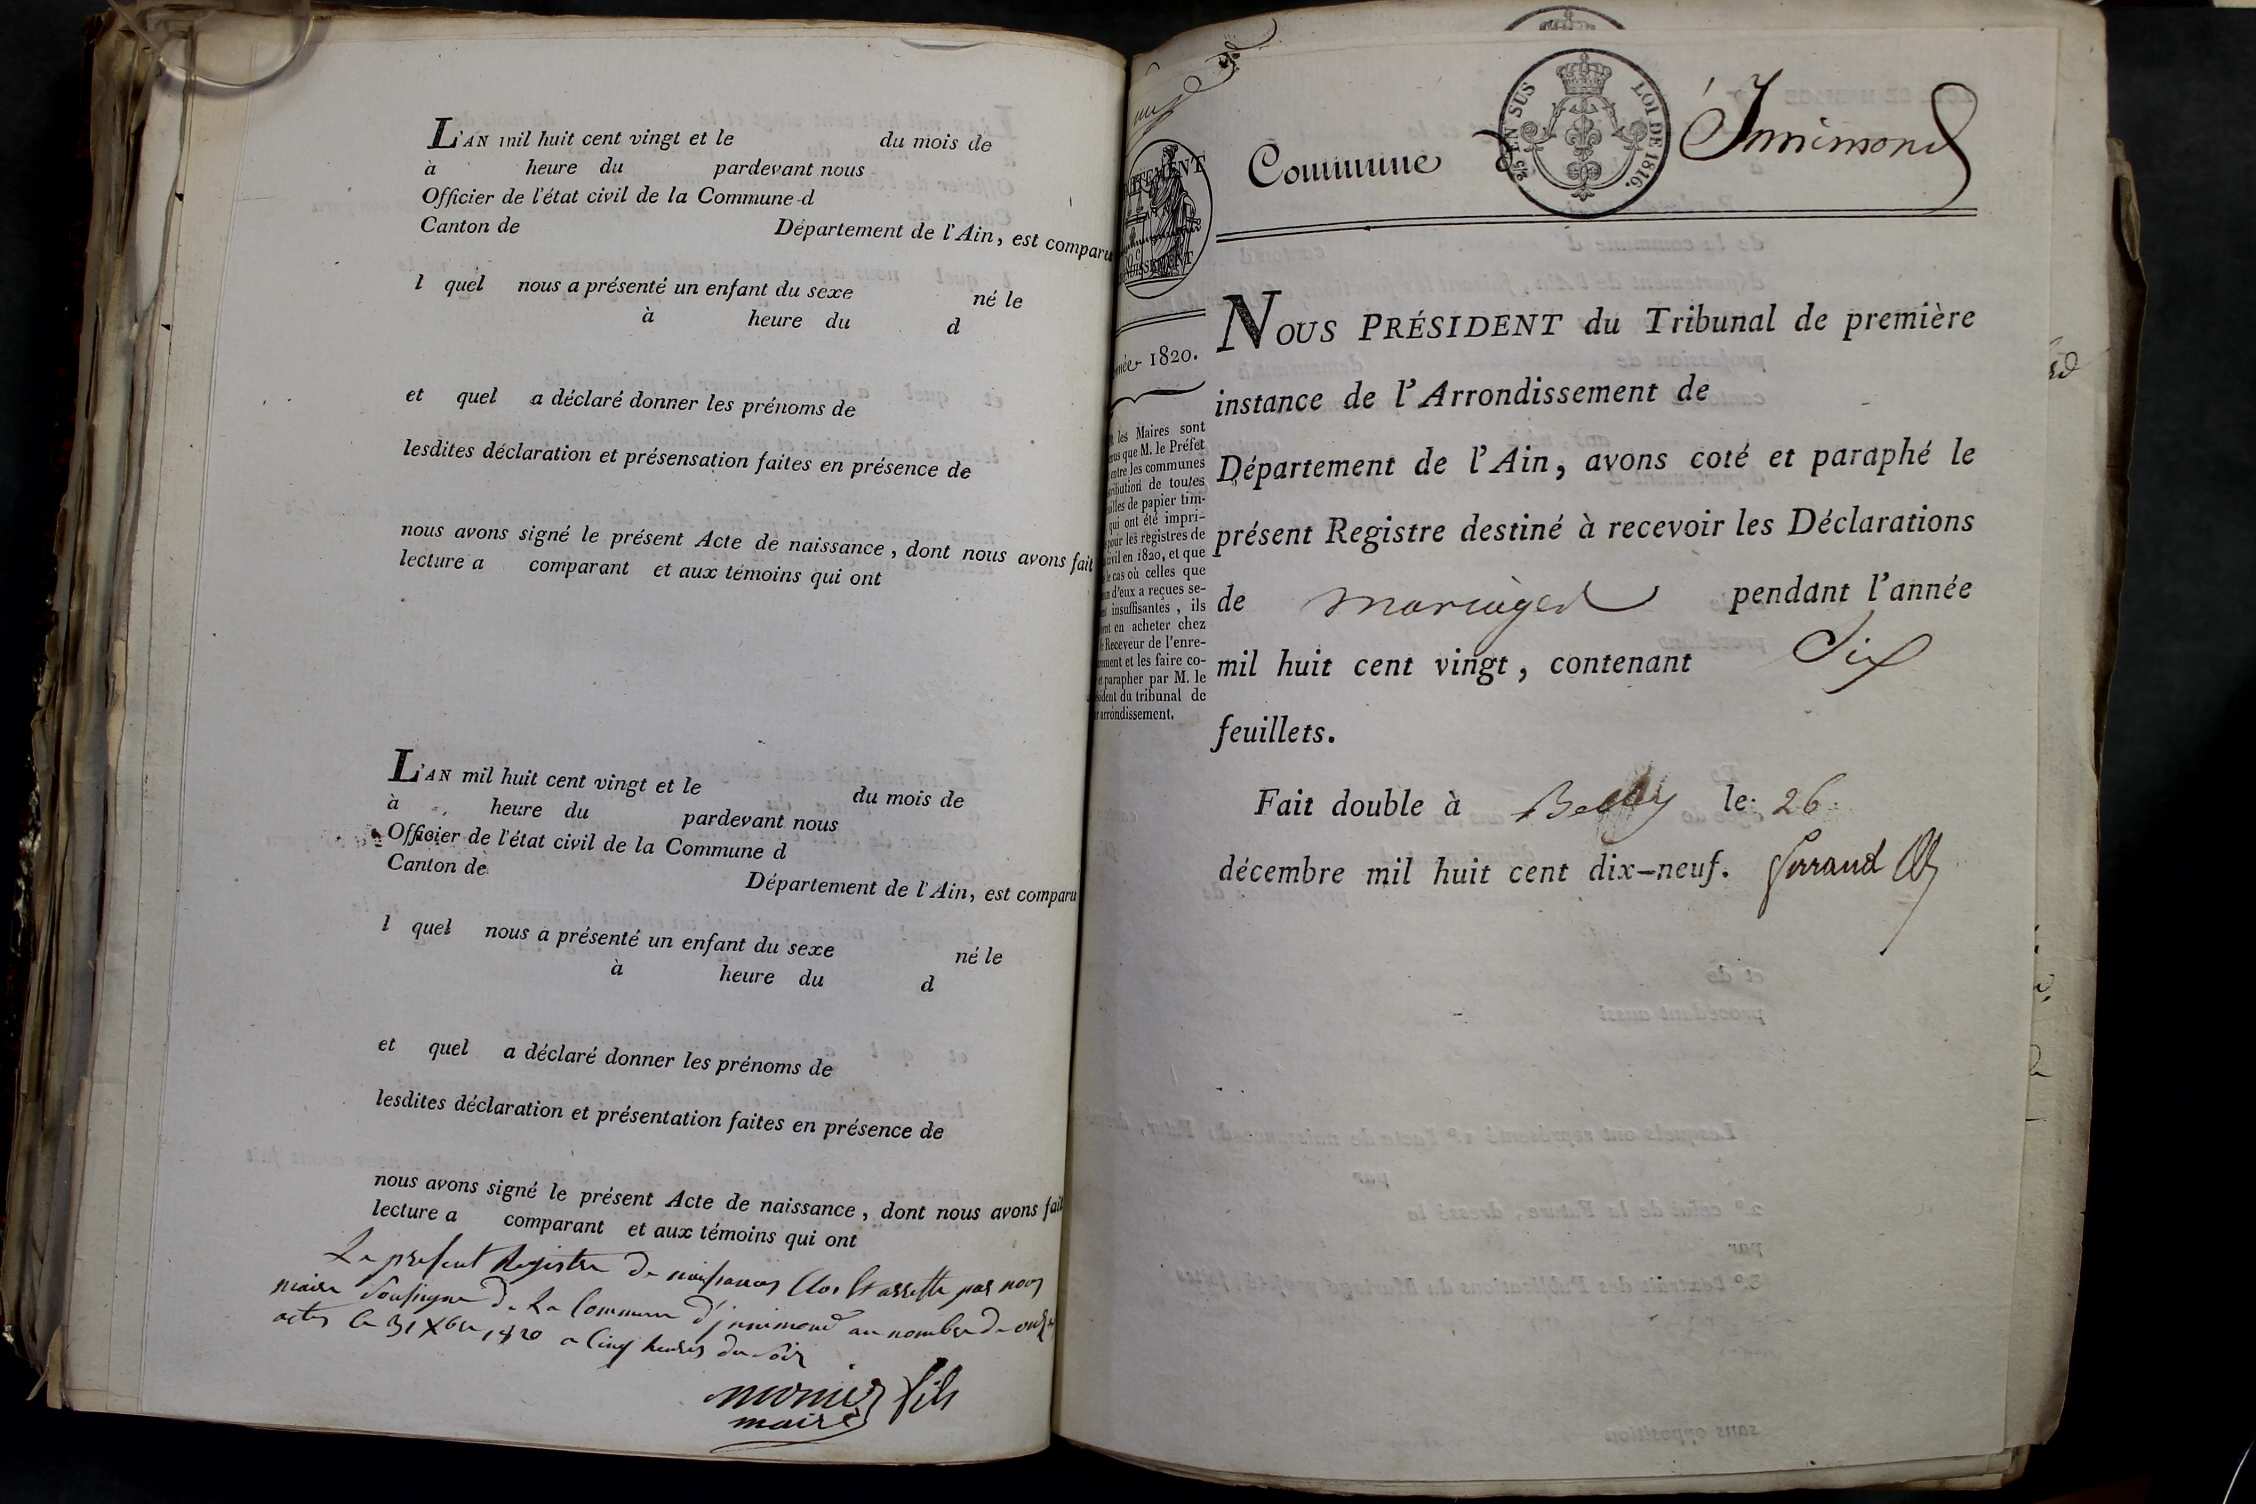 L'AN mil huit cent vingt et le du mois de
à heure du pardevant nous
Officier de l'état civil de la Commune d
Canton de Département de l'Ain, est comparu
l quel nous a présenté un enfant du sexe né le
à heure du d
et quel a déclaré donner les prénoms de
lesdites déclaration et présensation faites en présence de
nous avons signé le présent Acte de naissance, dont nous avons fait
lecture a comparant et aux témoins qui ont
L'AN mil huit cent vingt et le du mois de
à heure du pardevant nous
Officier de l'état civil de la Commune d
Canton de Département de l'Ain, est comparu
l quel nous a présenté un enfant du sexe né le
à heure du d
et quel a déclaré donner les prénoms de
lesdites déclaration et présentation faites en présence de
nous avons signé le présent Acte de naissance, dont nous avons fait
lecture a comparant et aux témoins qui ont
Le present Registre de naissances Clos et arretté par nous
maire Soussigné de La Commune d'innimond au nombre de onze
actes Ce 31 Xbre 1820 a Cinq heures du soir
monier fils
maire
Commune d'Innimond
EN SUS LOI DE 1816.
NOUS PRÉSIDENT du Tribunal de première
instance de l'Arrondissement de
Département de l'Ain, avons coté et paraphé le
présent Registre destiné à recevoir les Déclarations
de mariages pendant l'année
mil huit cent vingt, contenant Six
feuillets.
Fait double à Belley le 26
décembre mil huit cent dix-neuf.
1820.
les Maires sont
que M. le Préfet
entre les communes
de toutes
de papier tim-
qui ont été impri-
pour les registres de
civil en 1820, et que
le cas où celles que
d'eux a reçues se-
insuffisantes, ils
en acheter chez
Receveur de l'enre-
et les faire co-
parapher par M. le
du tribunal de
arrondissement.